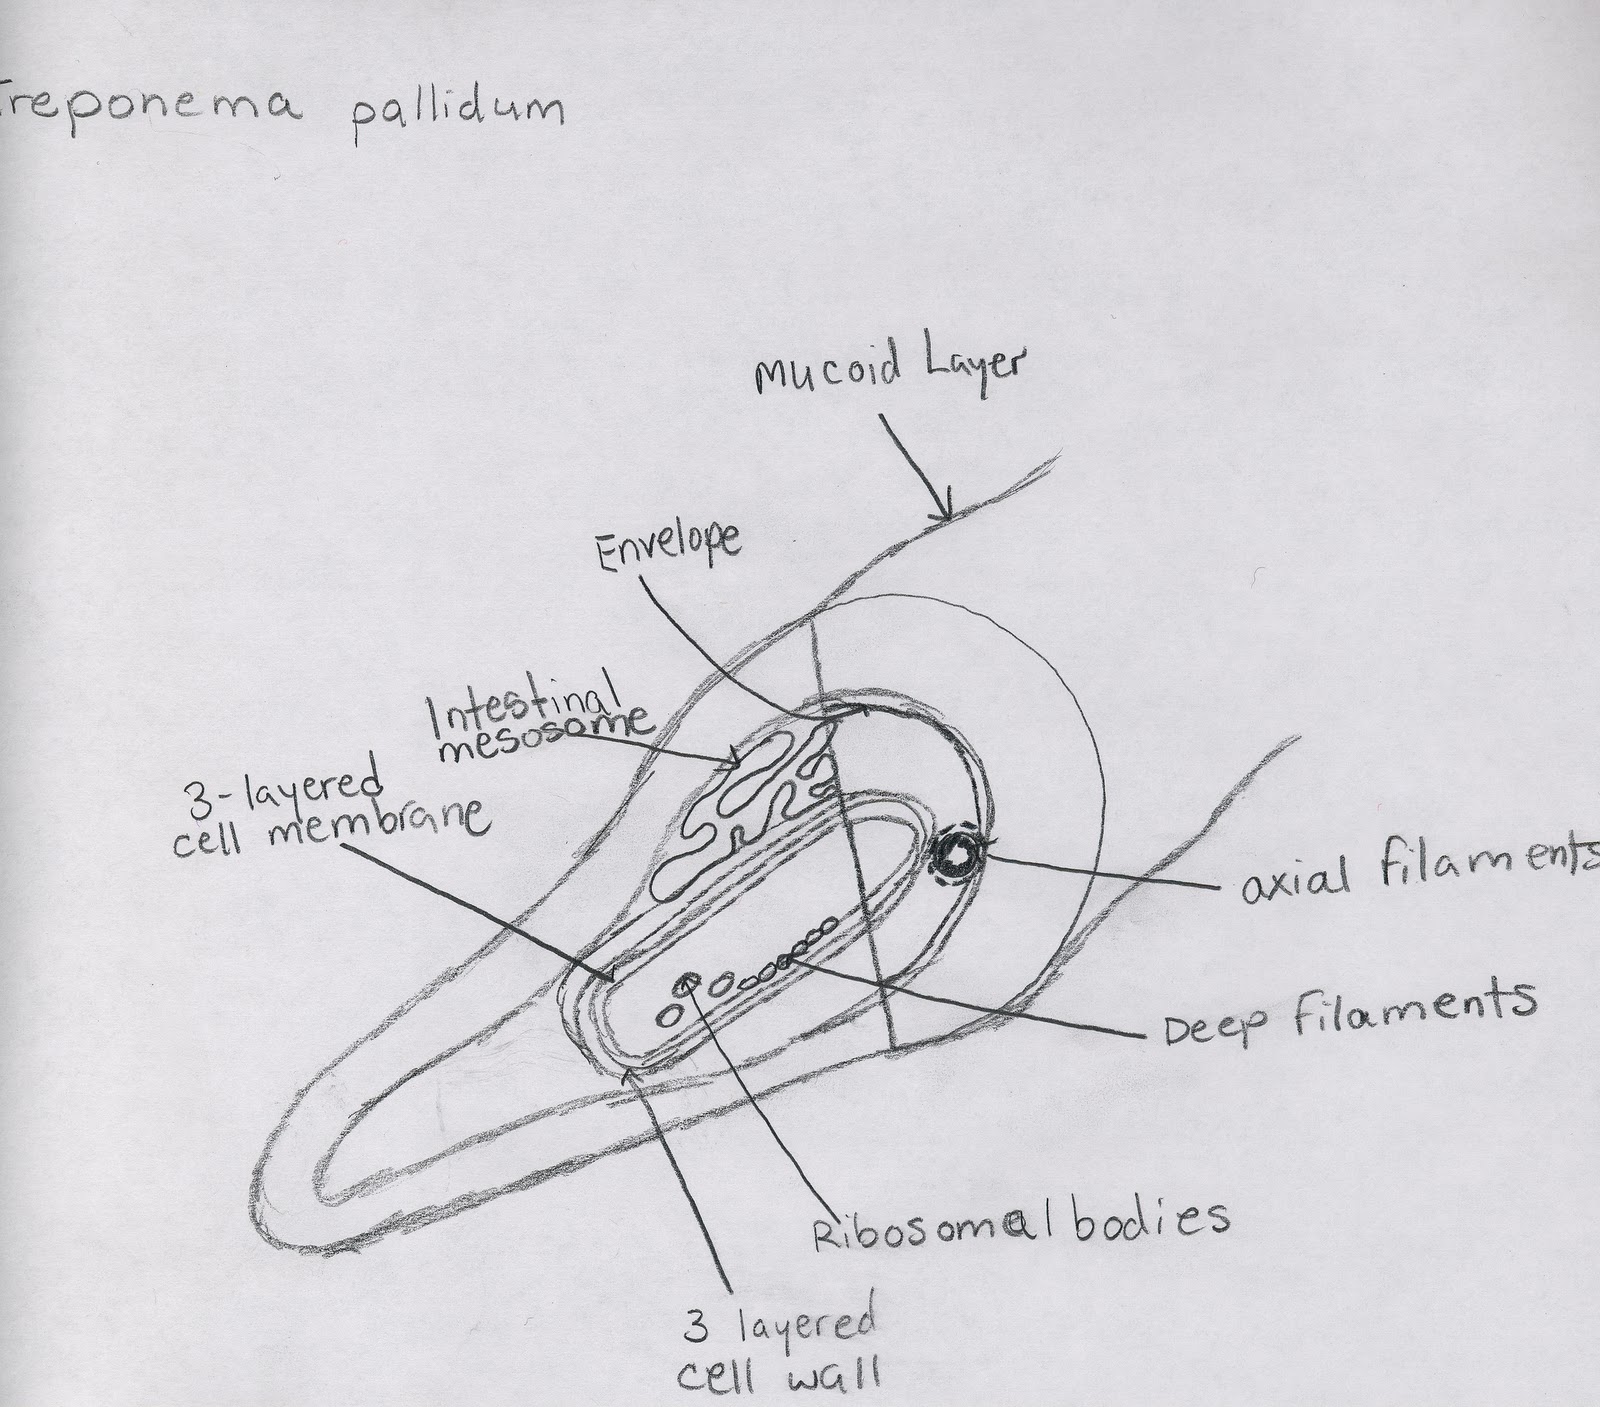 Treponema pallidum
Mucoid Layer
Envelope
Intestinal
mesosome
3-layered
cell membrane
axial filaments
Deep filaments
Ribosomal bodies
3 layered
cell wall